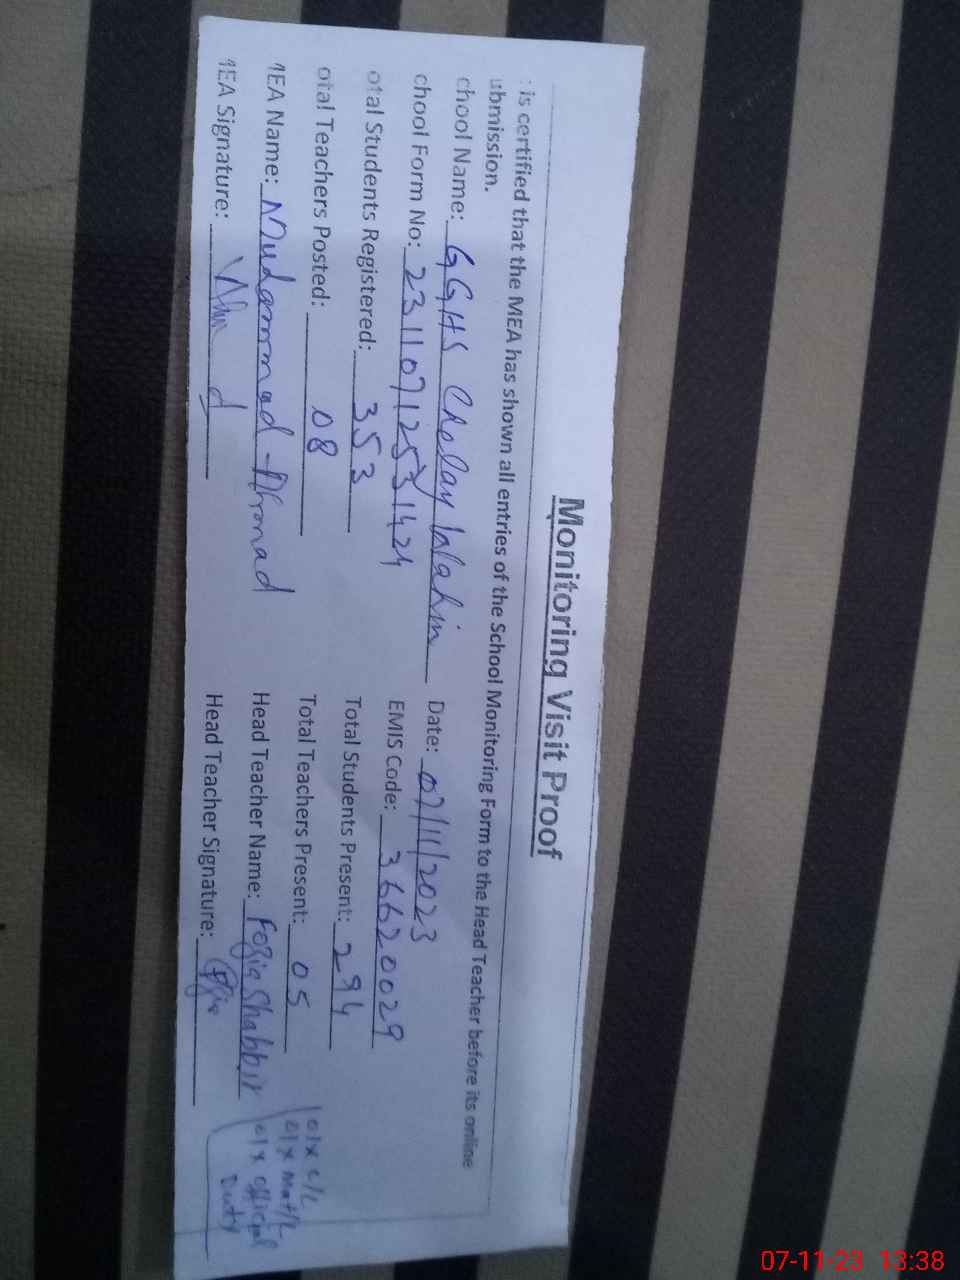 Monitoring Visit Proof
: is certified that the MEA has shown all entries of the School Monitoring Form to the Head Teacher before its online
ubmission.
chool Name: GGHS Chelay Wahin Date: 07/11/2023
chool Form No: 23110712531424 EMIS Code: 36620029
otal Students Registered: 353 Total Students Present: 294
otal Teachers Posted: 08 Total Teachers Present: 05
MEA Name: Muhammad Ahmad Head Teacher Name: Fozia Shabbir
MEA Signature: Head Teacher Signature:
01x C/L
01x Mat/L
01x official
Duty
07-11-23 13:38